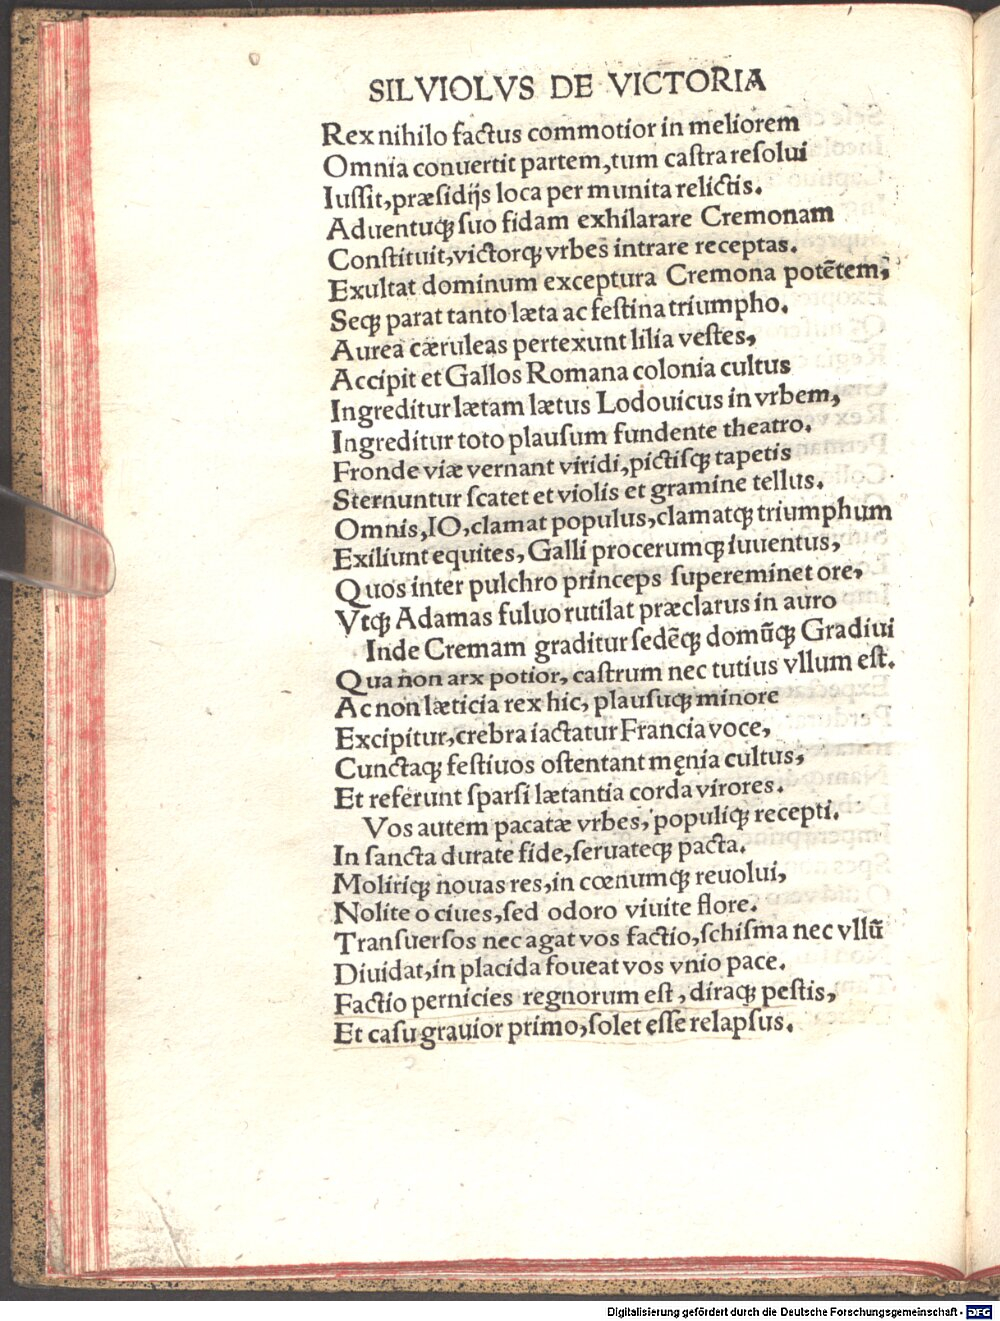 SILVIOLVS DE VICTORIA
Rex nihilo factus commotior in meliorem
Omnia conuertit partem, tum caſtra reſolui
Iuſſit, præſidijs loca per munita relictis.
Aduentuqꝫ ſuo fidam exhilarare Cremonam
Conſtituit, victorqꝫ vrbes intrare receptas.
Exultat dominum exceptura Cremona potētem,
Seqꝫ parat tanto læta ac feſtina triumpho.
Aurea cæruleas pertexunt lilia veſtes,
Accipit et Gallos Romana colonia cultus
Ingreditur lætam lætus Lodouicus in vrbem,
Ingreditur toto plauſum fundente theatro.
Fronde viæ vernant viridi, pictiſqꝫ tapetis
Sternuntur ſcatet et violis et gramine tellus.
Omnis, IO, clamat populus, clamatqꝫ triumphum
Exiliunt equites, Galli procerumqꝫ iuuentus,
Quos inter pulchro princeps ſupereminet ore,
Vtqꝫ Adamas fuluo rutilat præclarus in auro
Inde Cremam graditur ſedēqꝫ domūqꝫ Gradiui
Qua non arx potior, caſtrum nec tutius vllum eſt.
Ac non læticia rex hic, plauſuqꝫ minore
Excipitur, crebra iactatur Francia voce,
Cunctaqꝫ feſtiuos oſtentant męnia cultus,
Et referunt ſparſi lætantia corda virores.
Vos autem pacatæ vrbes, populiqꝫ recepti.
In ſancta durate fide, ſeruateqꝫ pacta.
Moliriqꝫ nouas res, in cœnumqꝫ reuolui,
Nolite o ciues, ſed odoro viuite flore.
Tranſuerſos nec agat vos factio, ſchiſma nec vllū
Diuidat, in placida foueat vos vnio pace.
Factio pernicies regnorum eſt, diraqꝫ peſtis,
Et caſu grauior primo, ſolet eſſe relapſus.
Digitalisierung gefördert durch die Deutsche Forschungsgemeinschaft - DFG